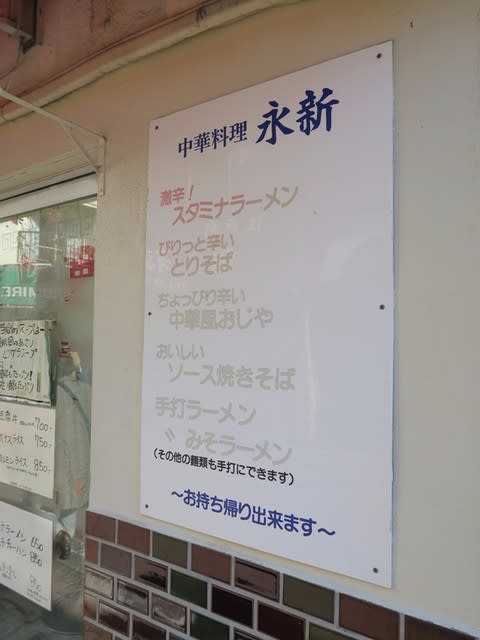 中華料理 永新
激辛!
スタミナラーメン
ぴりっと辛い
とりそば
ちょっぴり辛い
中華風おじや
おいしい
ソース焼きそば
手打ラーメン
〃 みそラーメン
(その他の麺類も手打にできます)
〜お持ち帰り出来ます〜
MIRE
700
750
850